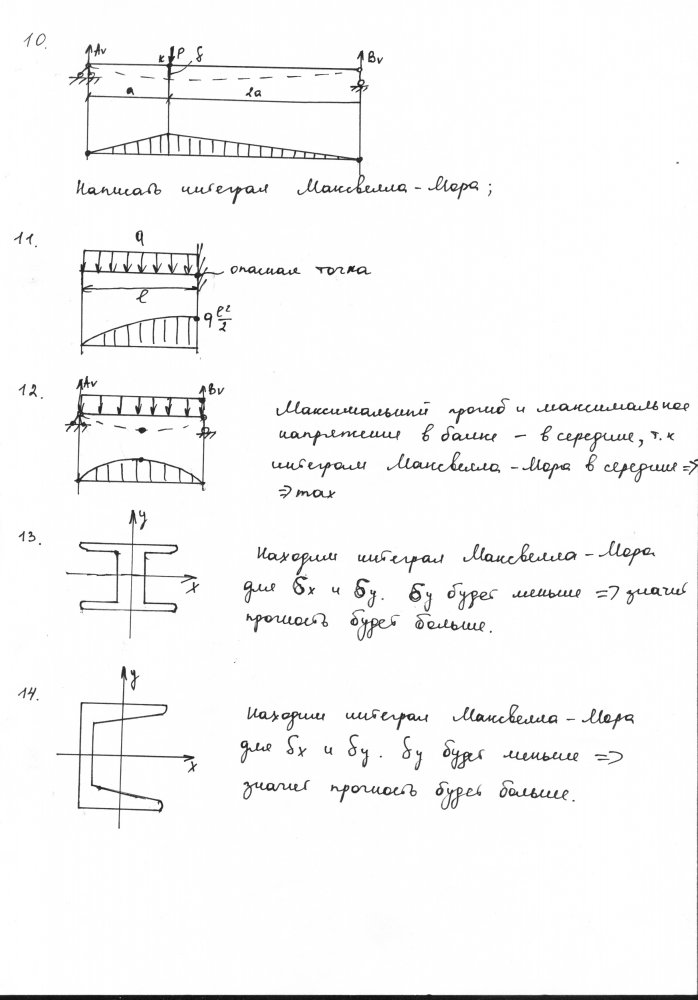 10.
Av
к P f
Bv
a 2a
Написать интеграл Максвелла-Мора;
11.
q
опасная точка
l
q l²/2
12.
Av Bv
Максимальний прогиб и максимальное
напряжение в балке - в середине, т.к
интеграл Максвелла-Мора в середине =>
=> max
13.
y
x
Находим интеграл Максвелла-Мора
для бx и бy. бy будет меньше => значит
прочность будет больше.
14.
y
x
Находим интеграл Максвелла-Мора
для δx и δy. δy будет меньше =>
значит прочность будет больше.